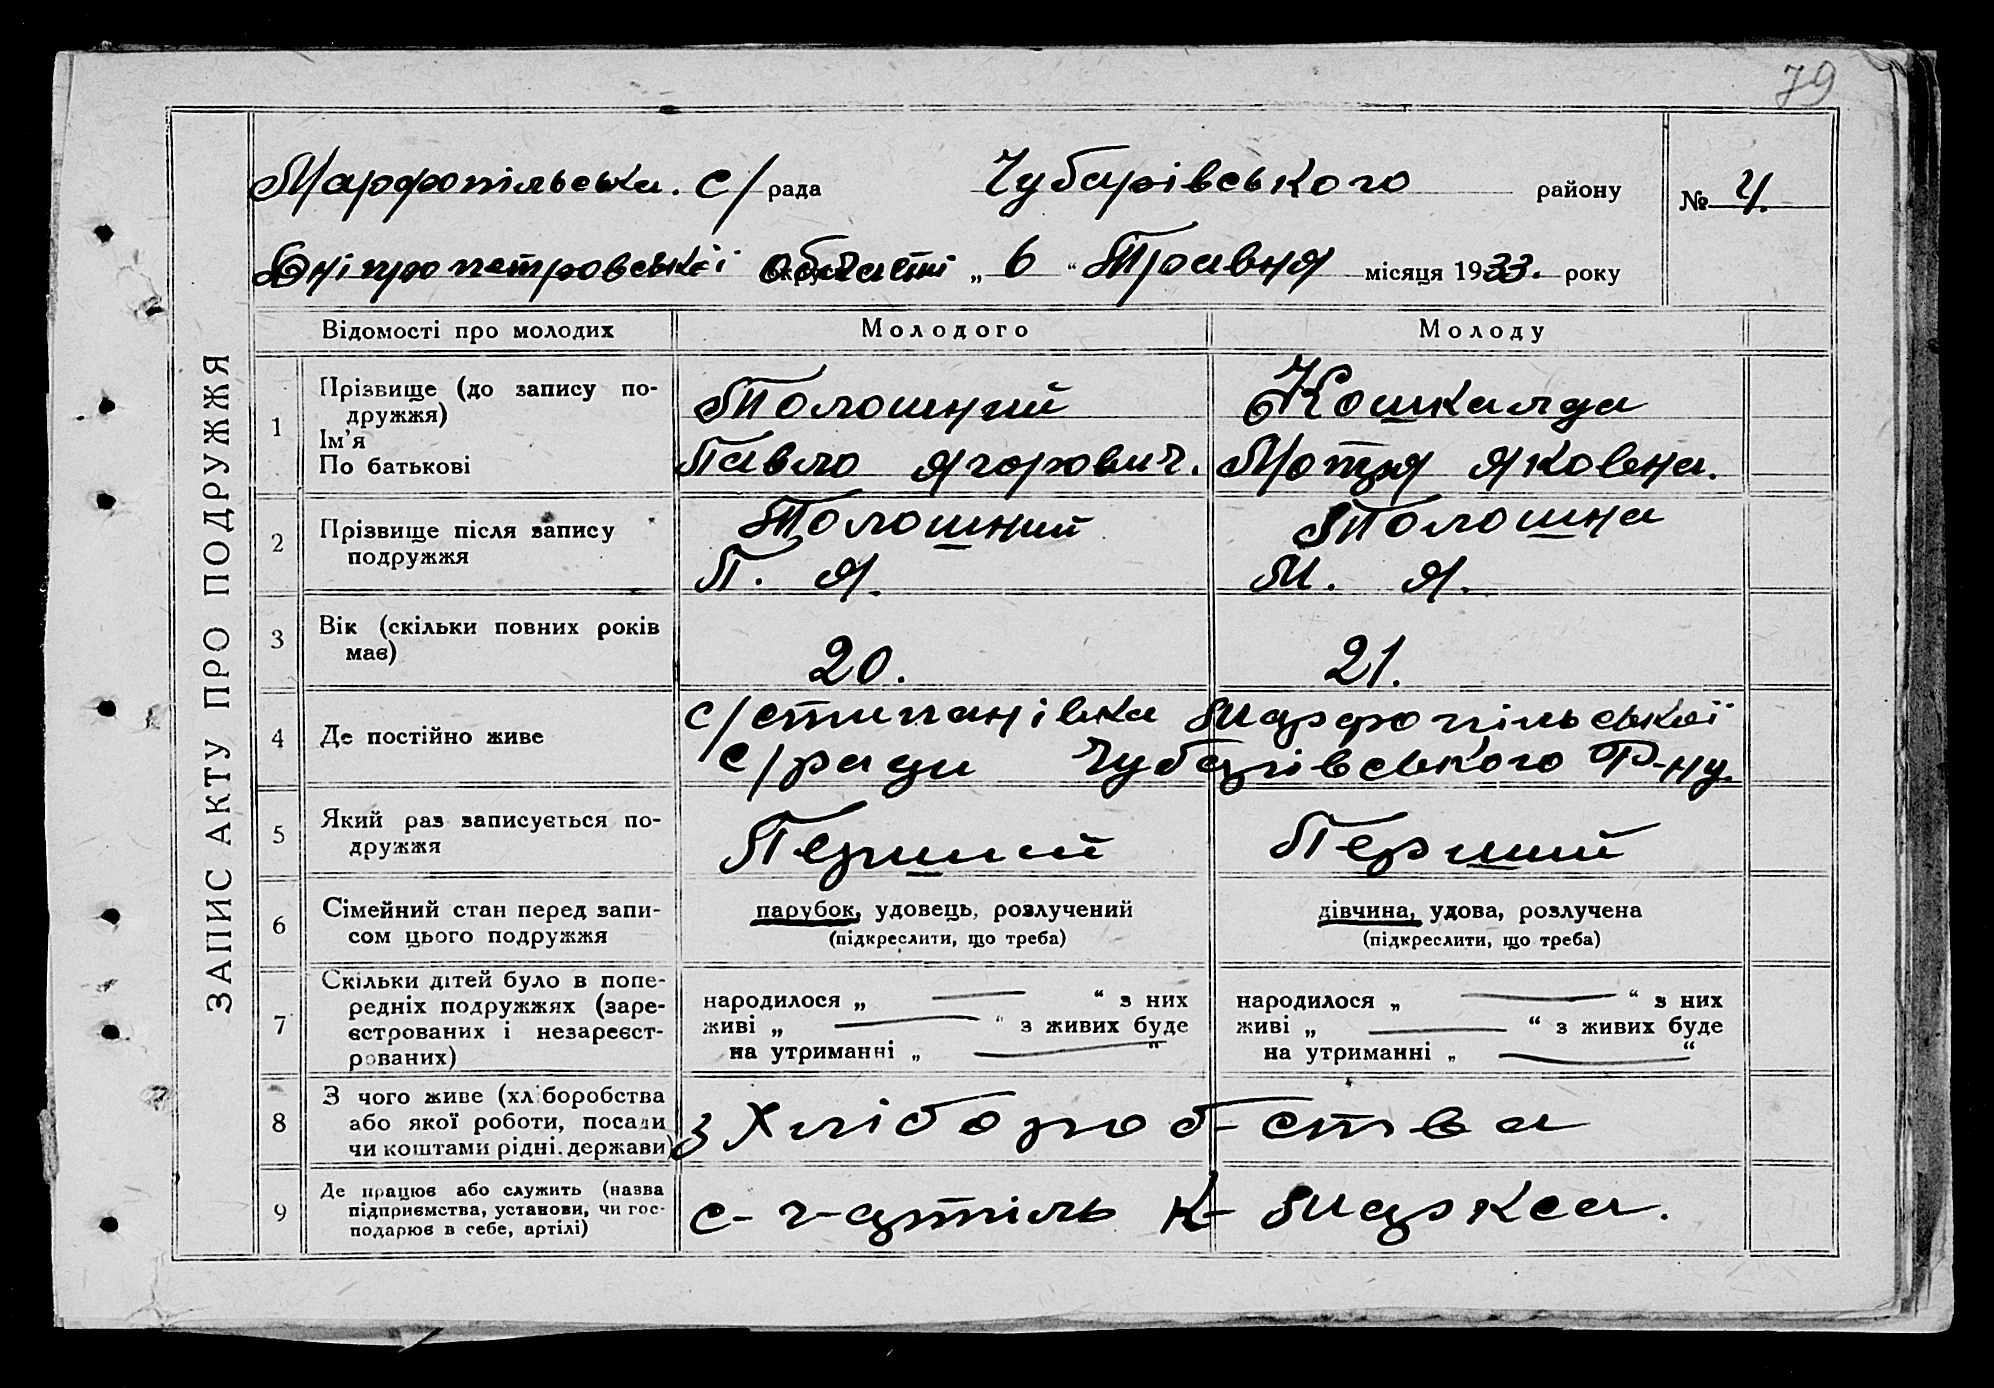 79
Марфопільська. с/рада Чубарівського району № 4.
Дніпропетровської області „ 6 “ Травня місяця 1933. року
ЗАПИС АКТУ ПРО ПОДРУЖЖЯ
Відомості про молодих Молодого Молоду
1 Прізвище (до запису по-
дружжя)
Ім'я
По батькові
Толошний Кошкалда
Павло Ягорович. Мотря Яковна.
2 Прізвище після запису
подружжя
Толошний Толошна
П. Я. М. Я.
3 Вік (скільки повних років
має)
20. 21.
4 Де постійно живе
с/стипанівка Марфопільської
с/ради Чубарівського Р-ну.
5 Який раз записується по-
дружжя
Перший Перший
6 Сімейний стан перед запи-
сом цього подружжя
парубок, удовець, розлучений дівчина, удова, розлучена
(підкреслити, що треба) (підкреслити, що треба)
7 Скільки дітей було в попе-
редніх подружжях (заре-
єстрованих і незареєст-
рованих)
народилося „ — “ з них народилося „ — “ з них
живі „ — “ з живих буде живі „ — “ з живих буде
на утриманні „ — “ на утриманні „ — “
8 З чого живе (хліборобства
або якої роботи, посади
чи коштами рідні, держави)
з Хліборобства
9 Де працює або служить (назва
підприємства, установи, чи гос-
подарює в себе, артілі)
с-г-артіль К-Маркса.